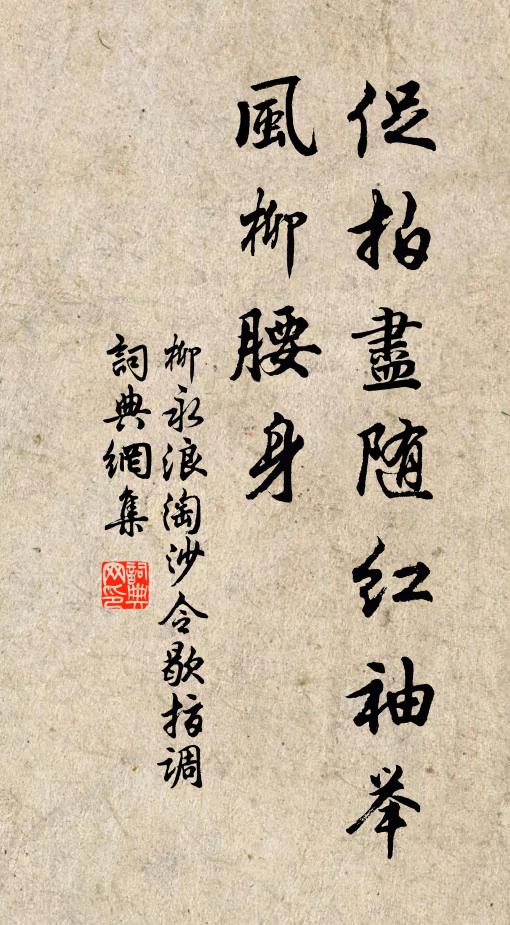 促拍盡随红袖举
風柳腰身
柳永浪淘沙令歇指调
詞典網集
詞典网印